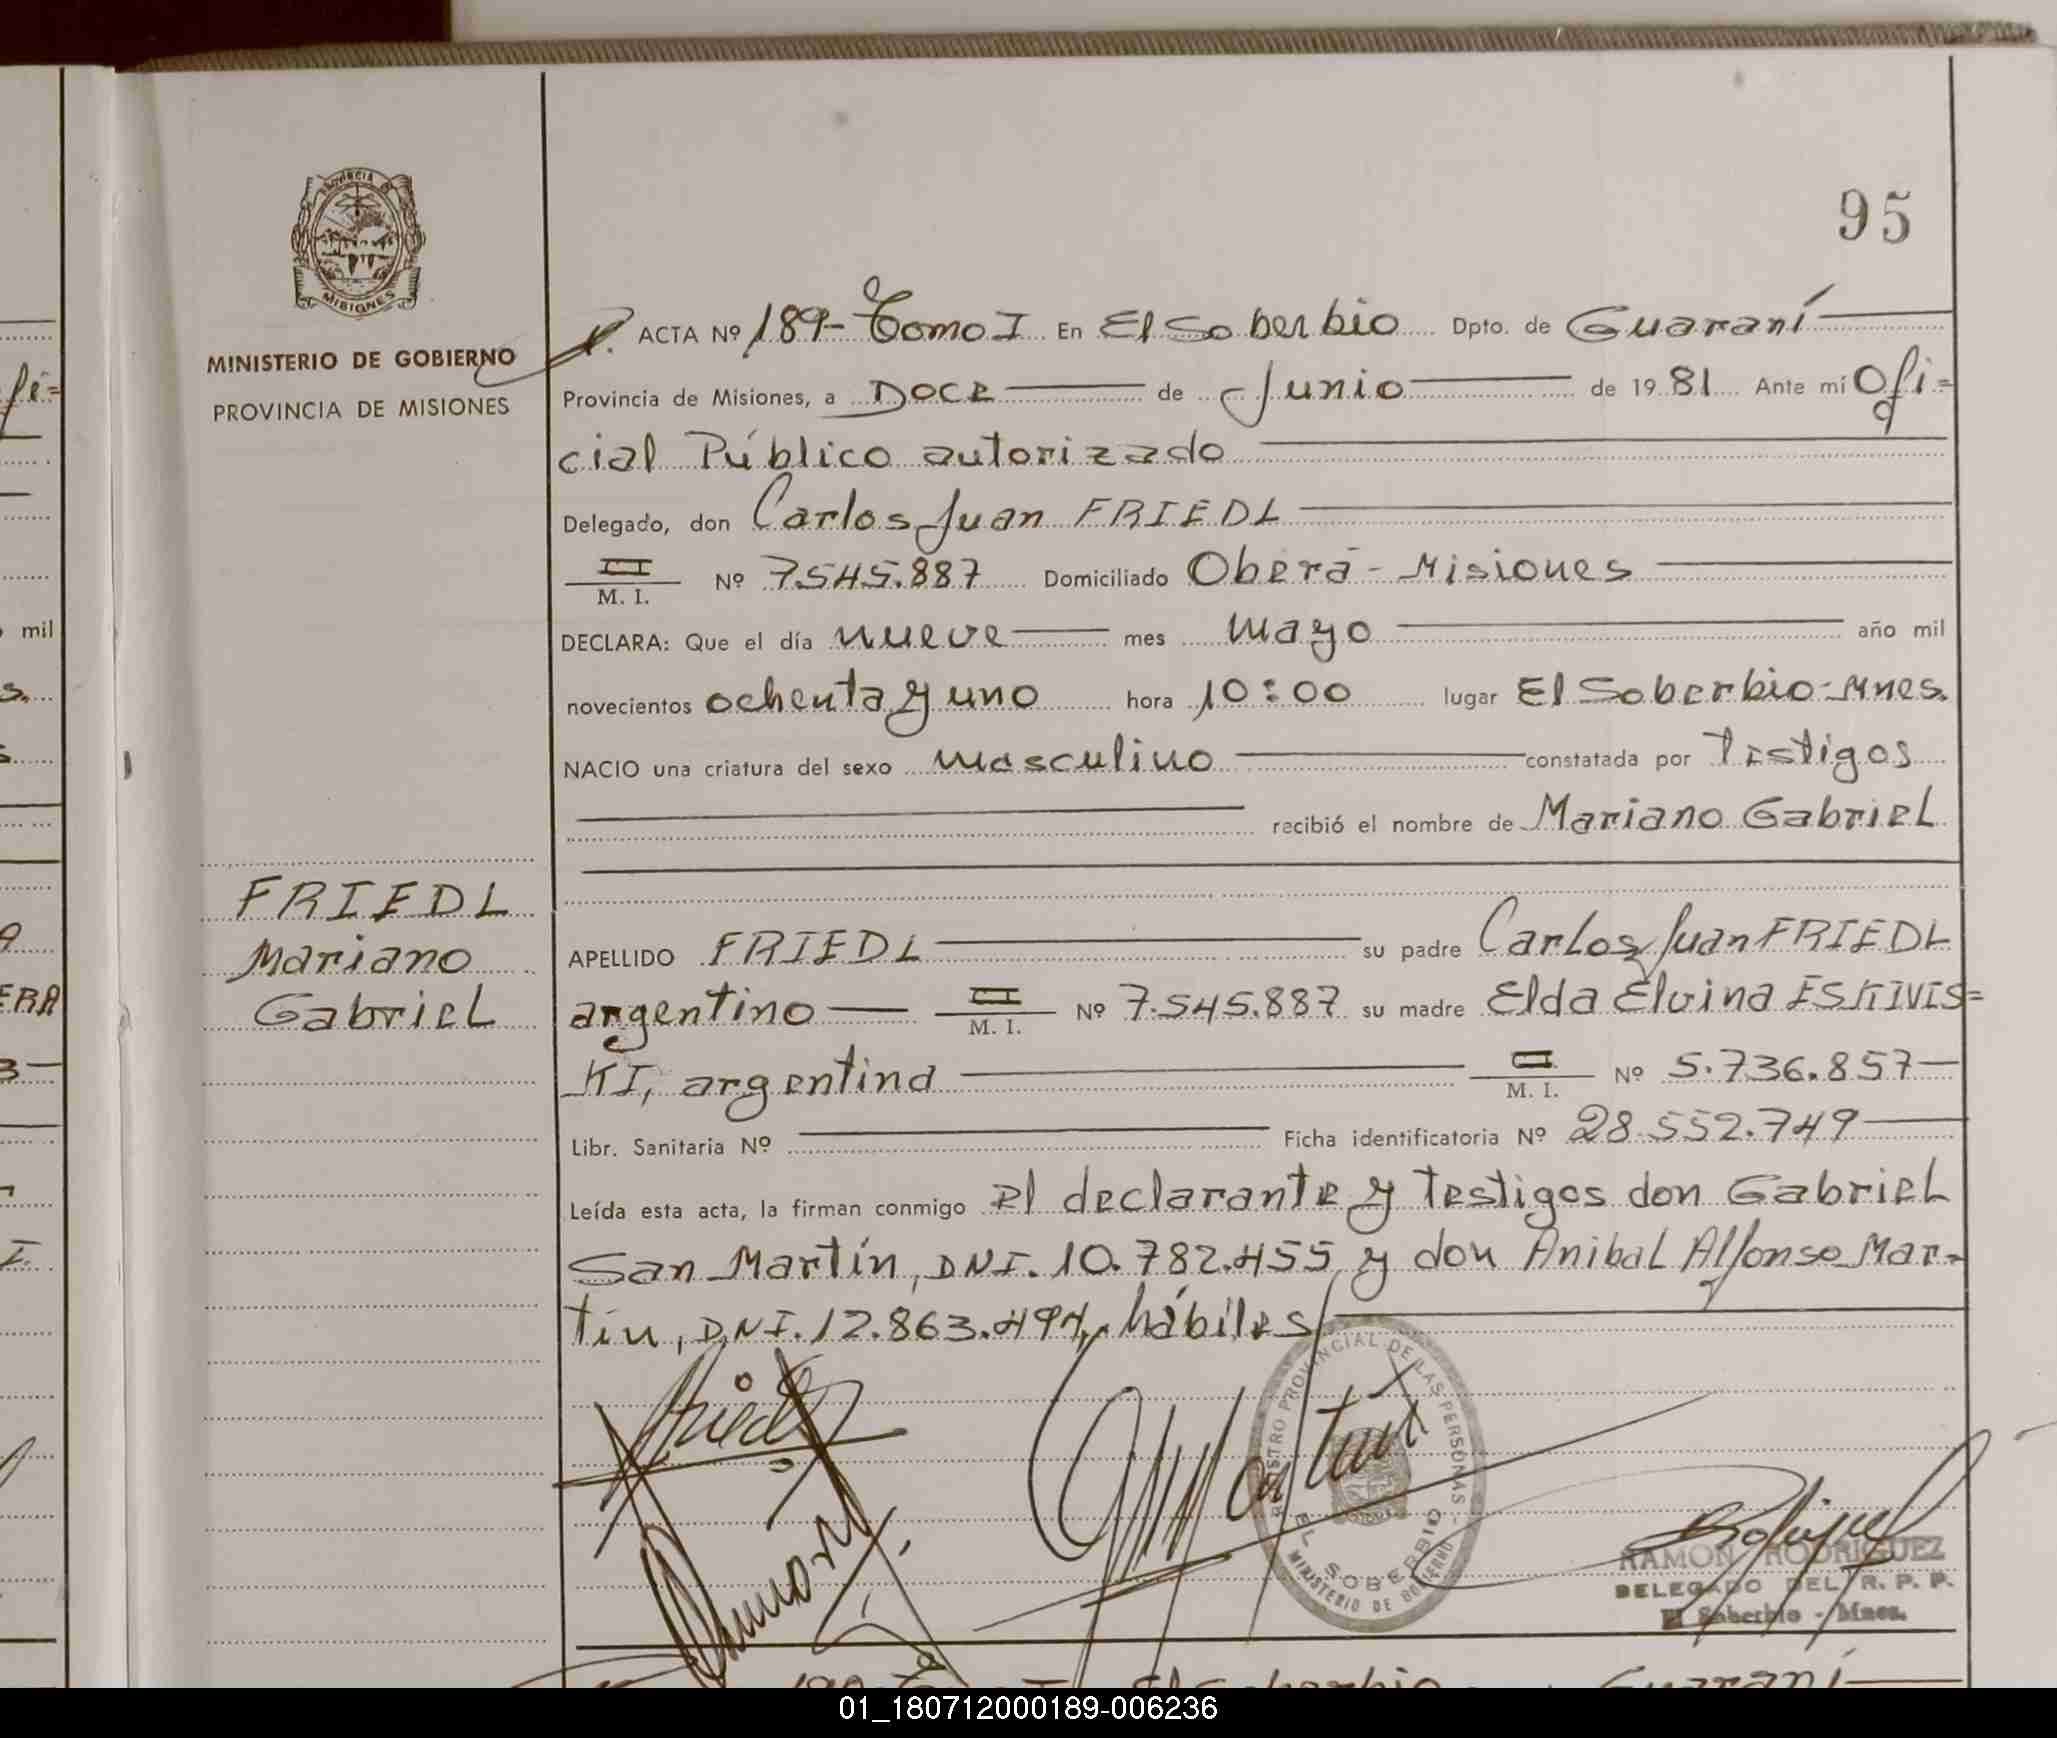 95
PROVINCIA DE
MISIONES
MINISTERIO DE GOBIERNO
PROVINCIA DE MISIONES
ACTA Nº 189- Tomo I En El Soberbio Dpto. de Guaraní
Provincia de Misiones, a Doce de Junio de 1981 Ante mí Ofi=
cial Público autorizado
Delegado, don Carlos Juan FRIEDL
M. I. Nº 7.545.887 Domiciliado Oberá - Misiones
DECLARA: Que el día nueve mes mayo año mil
novecientos ochenta y uno hora 10:00 lugar El Soberbio-Mnes.
NACIO una criatura del sexo masculino constatada por Testigos
recibió el nombre de Mariano Gabriel
FRIEDL
Mariano
Gabriel
APELLIDO FRIEDL su padre Carlos Juan FRIEDL
argentino M. I. Nº 7.545.887 su madre Elda Elvina ESKIVIS=
KI, argentina M. I. Nº 5.736.857
Libr. Sanitaria Nº Ficha identificatoria Nº 28.552.749
Leída esta acta, la firman conmigo el declarante y testigos don Gabriel
San Martín, DNI. 10.782.455 y don Anibal Alfonso Mar=
tín, DNI. 12.863.494, hábiles
REGISTRO PROVINCIAL DE LAS PERSONAS
EL SOBERBIO
MINISTERIO DE GOBIERNO
RAMON RODRIGUEZ
DELEGADO DEL R. P. P.
El Soberbio - Mnes.
mil
01_180712000189-006236